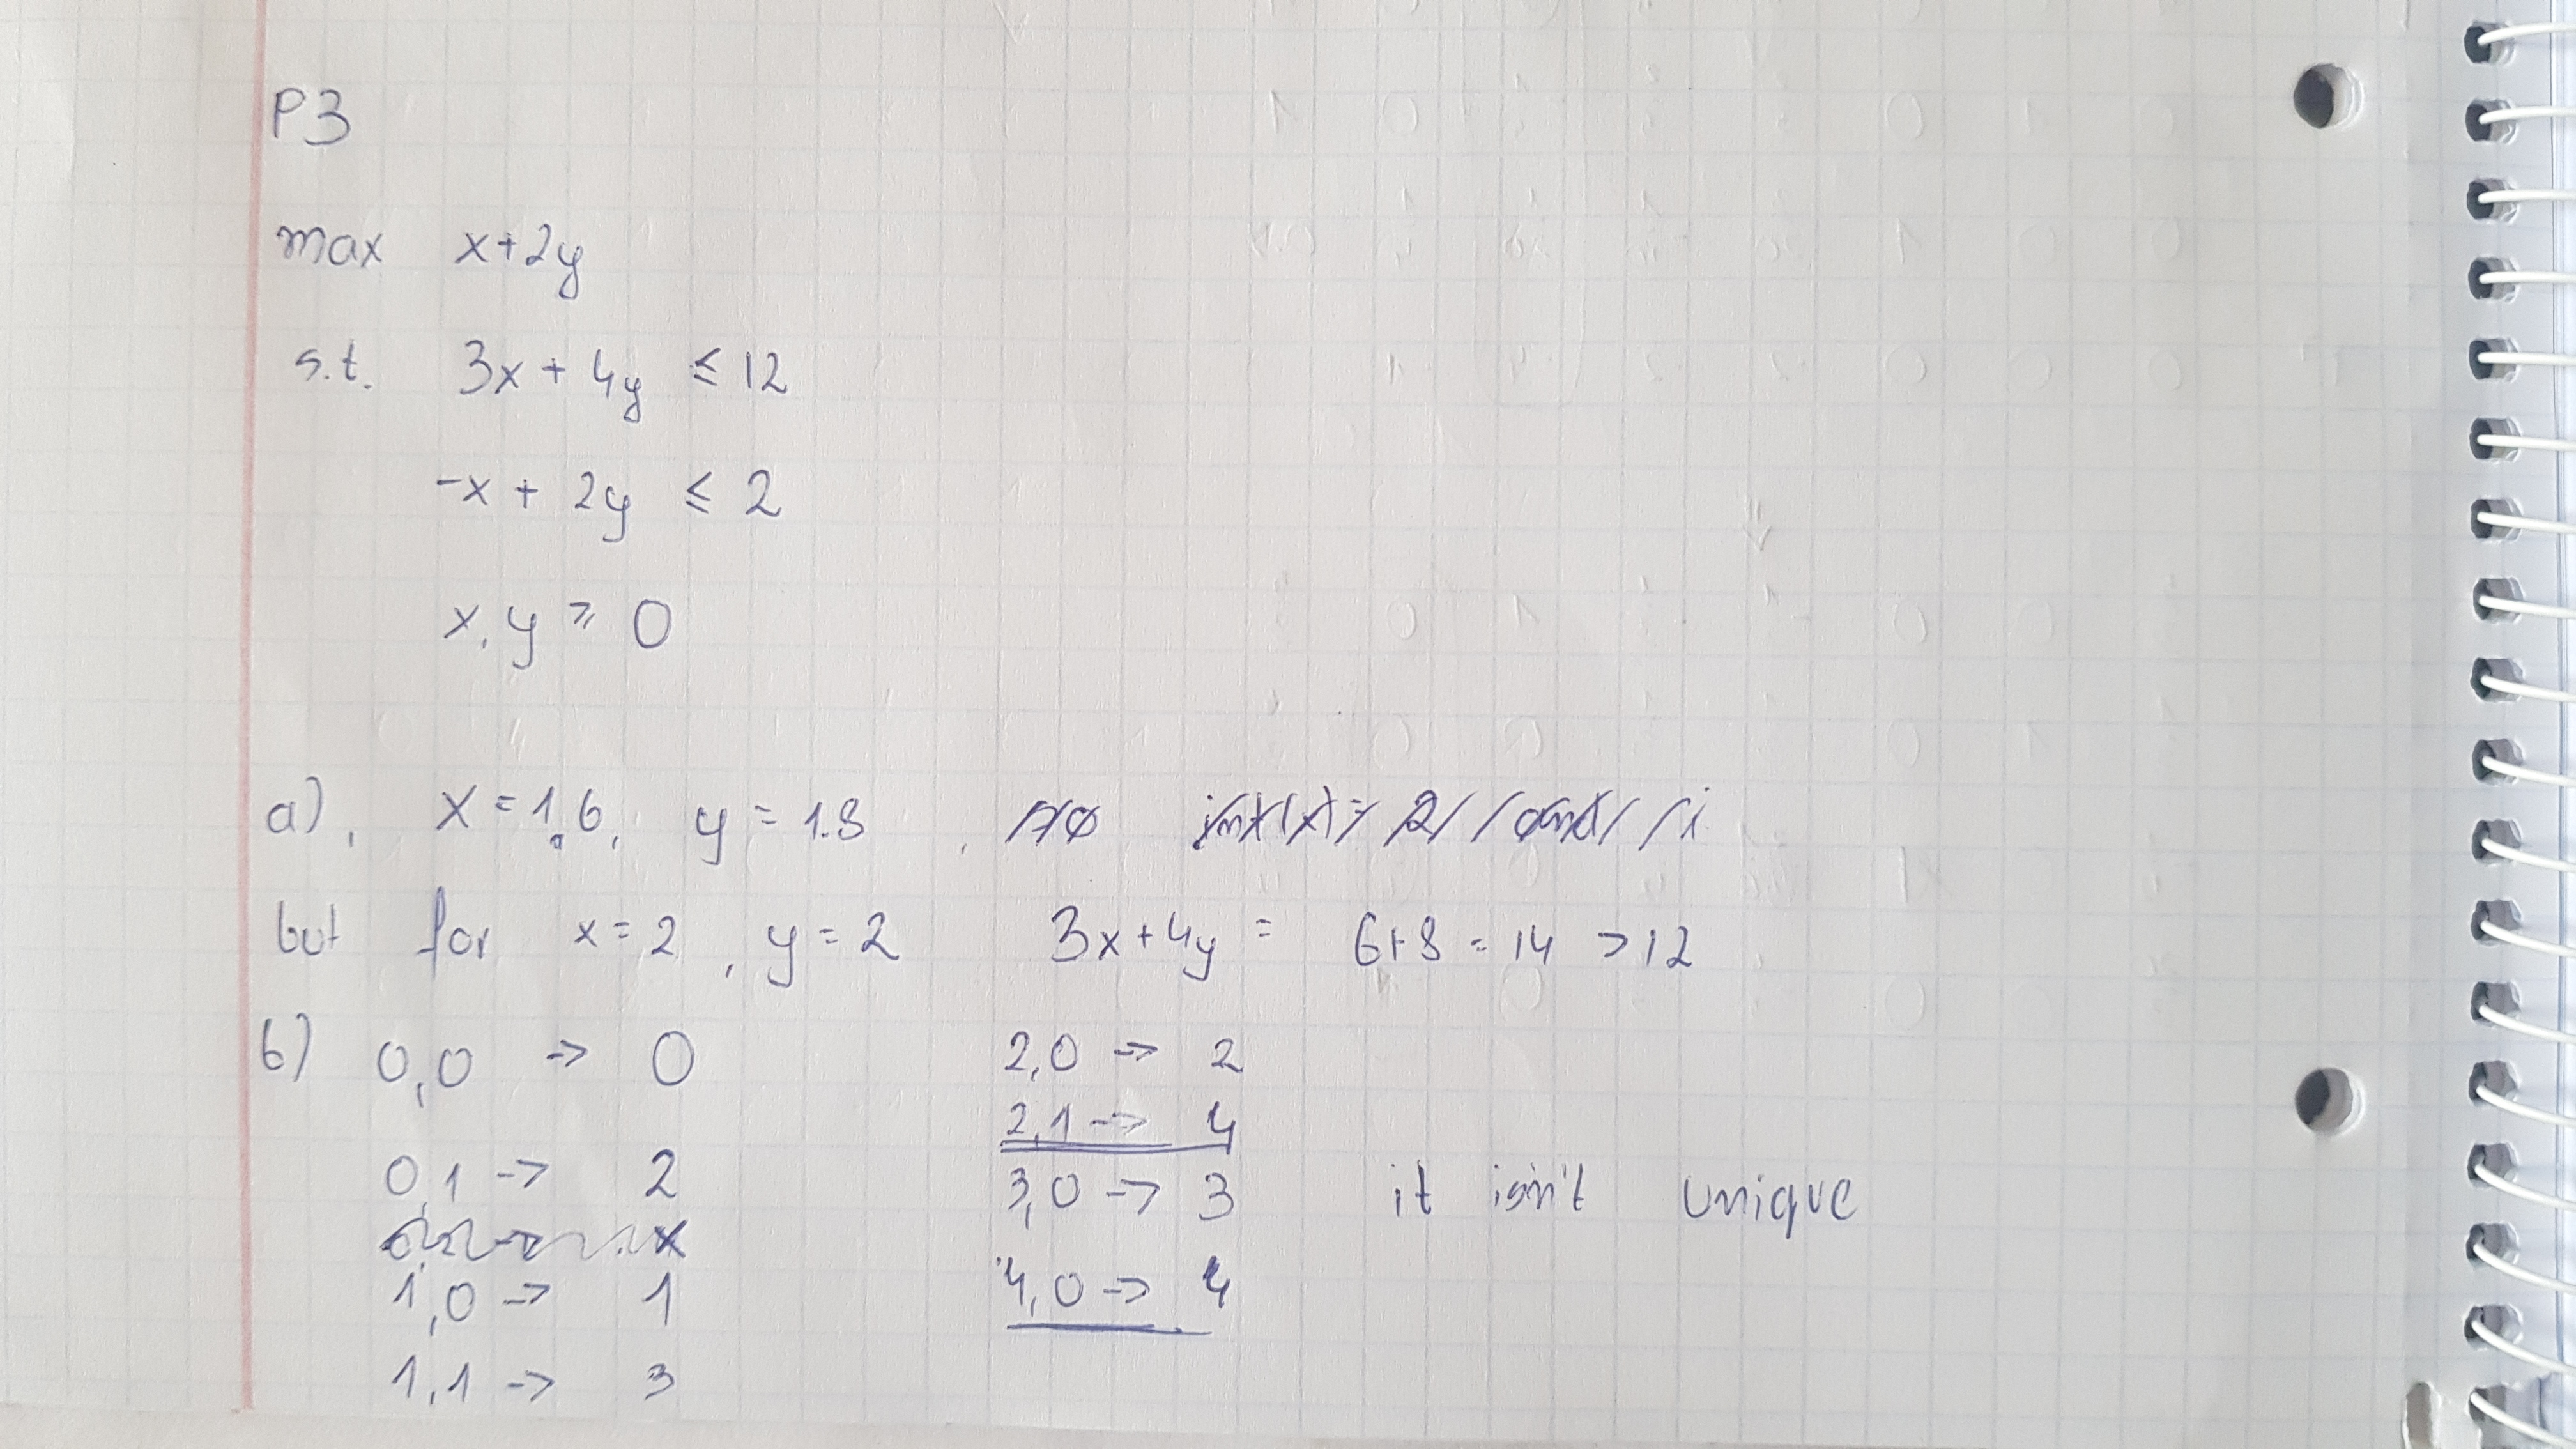 P3
max x+2y
s.t. 3x + 4y ≤ 12
-x + 2y ≤ 2
x, y ≥ 0
a), x = 1,6, y = 1.8
but for x = 2, y = 2 3x + 4y = 6+8 = 14 > 12
b) 0,0 -> 0
0,1 -> 2
1,0 -> 1
1,1 -> 3
2,0 -> 2
2,1 -> 4
3,0 -> 3
4,0 -> 4
it isn't unique